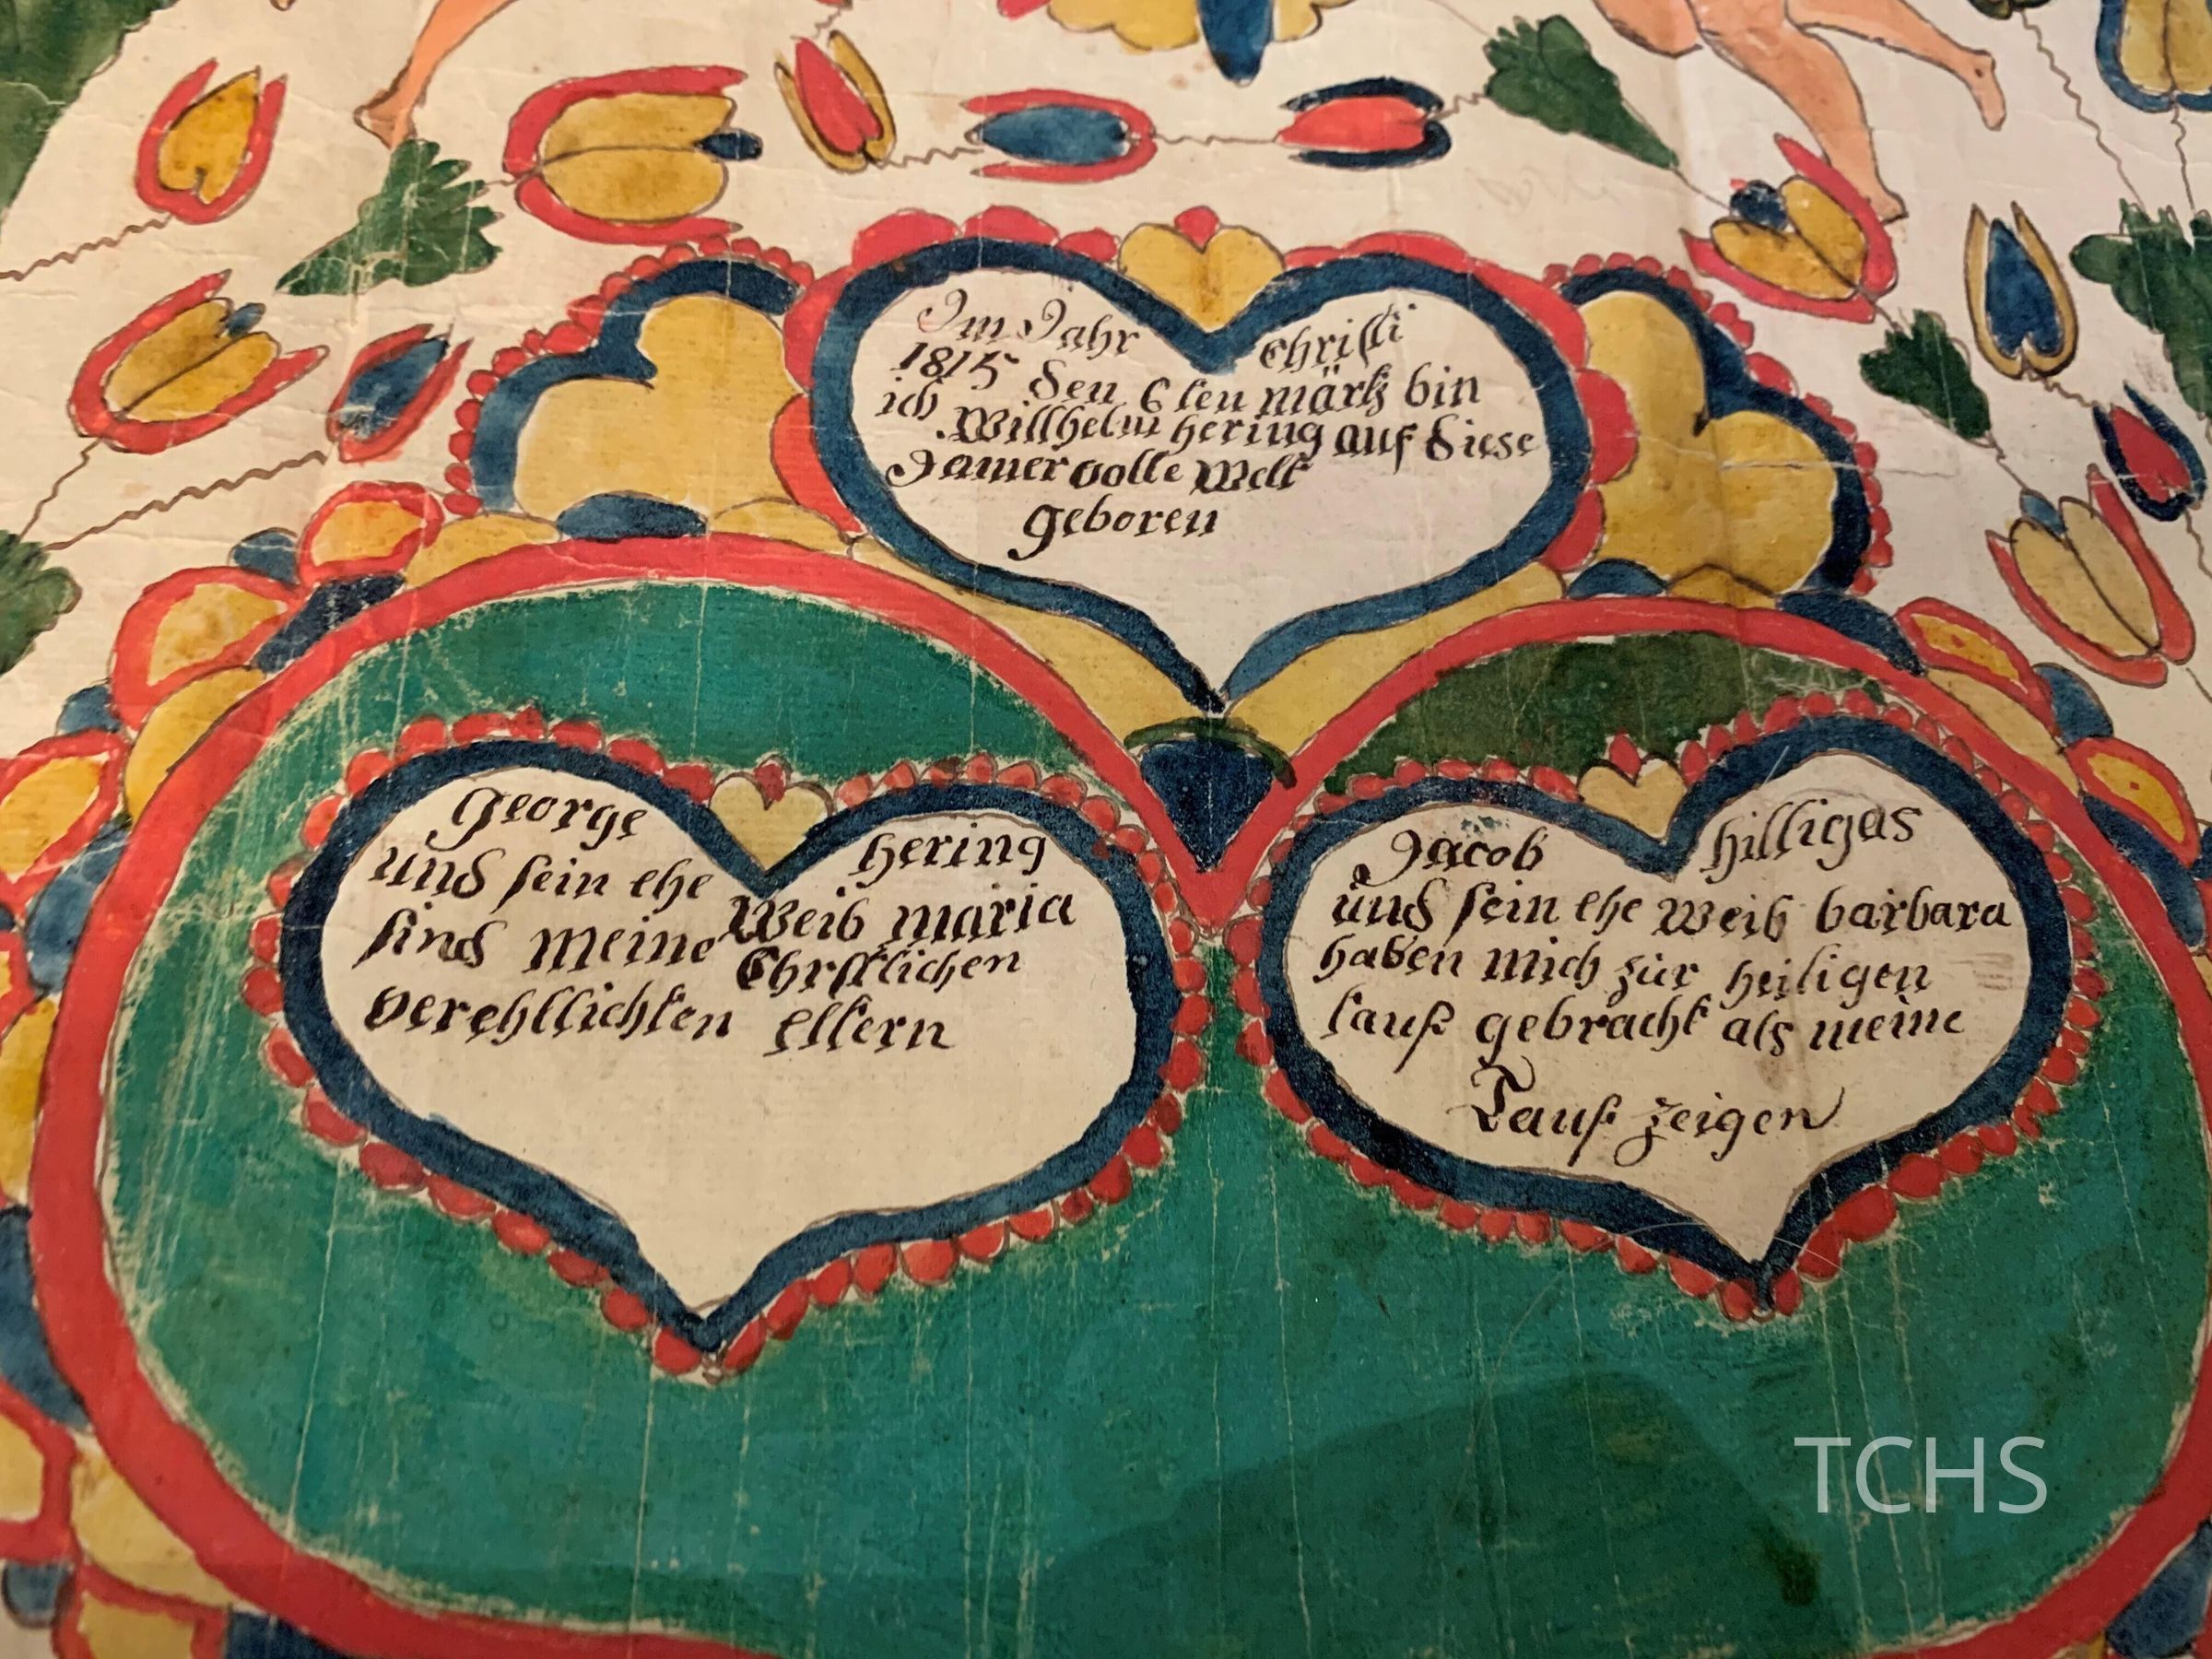 Im Jahr Christi
1815 den 6ten märtz bin
ich Willhelm hering auf diese
Jamer volle Welt
geboren
george hering
und sein ehe Weib maria
sind meine Chrstlichen
verehllichten eltern
Jacob hilligas
und sein ehe Weib barbara
haben mich zur heiligen
tauf gebracht als meine
Tauf zeigen
TCHS